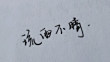 流雨不晴.